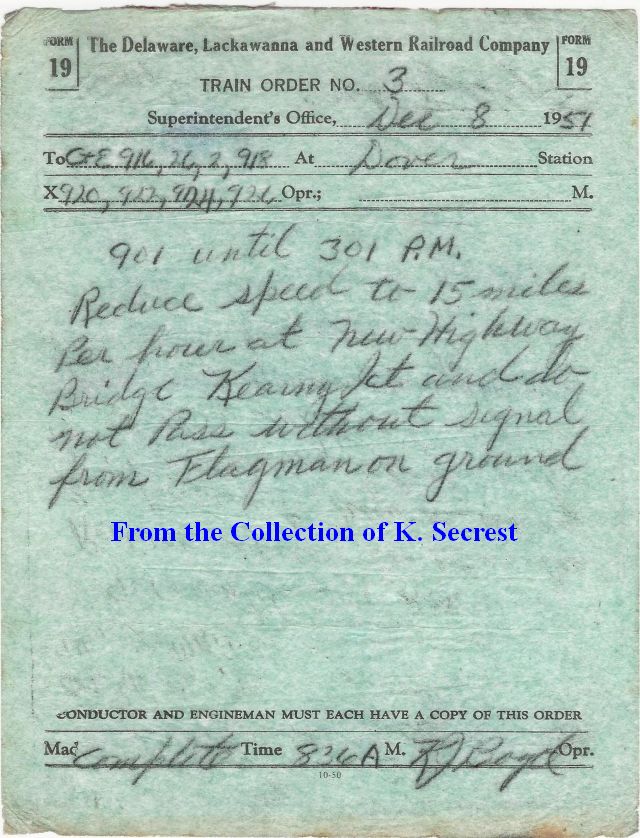 FORM 19
The Delaware, Lackawanna and Western Railroad Company
FORM 19
TRAIN ORDER NO. 3
Superintendent's Office, Dec 8 1951
To C+E 916, 26, 2, 918 At Dover Station
X 920, 922, 924, 926 Opr.; M.
901 until 301 P.M.
Reduce speed to 15 miles
Per hour at New Highway
Bridge Kearny Jct and do
not Pass without signal
from Flagman on ground
From the Collection of K. Secrest
CONDUCTOR AND ENGINEMAN MUST EACH HAVE A COPY OF THIS ORDER
Mad Complete Time 836 A M. Opr.
10-50